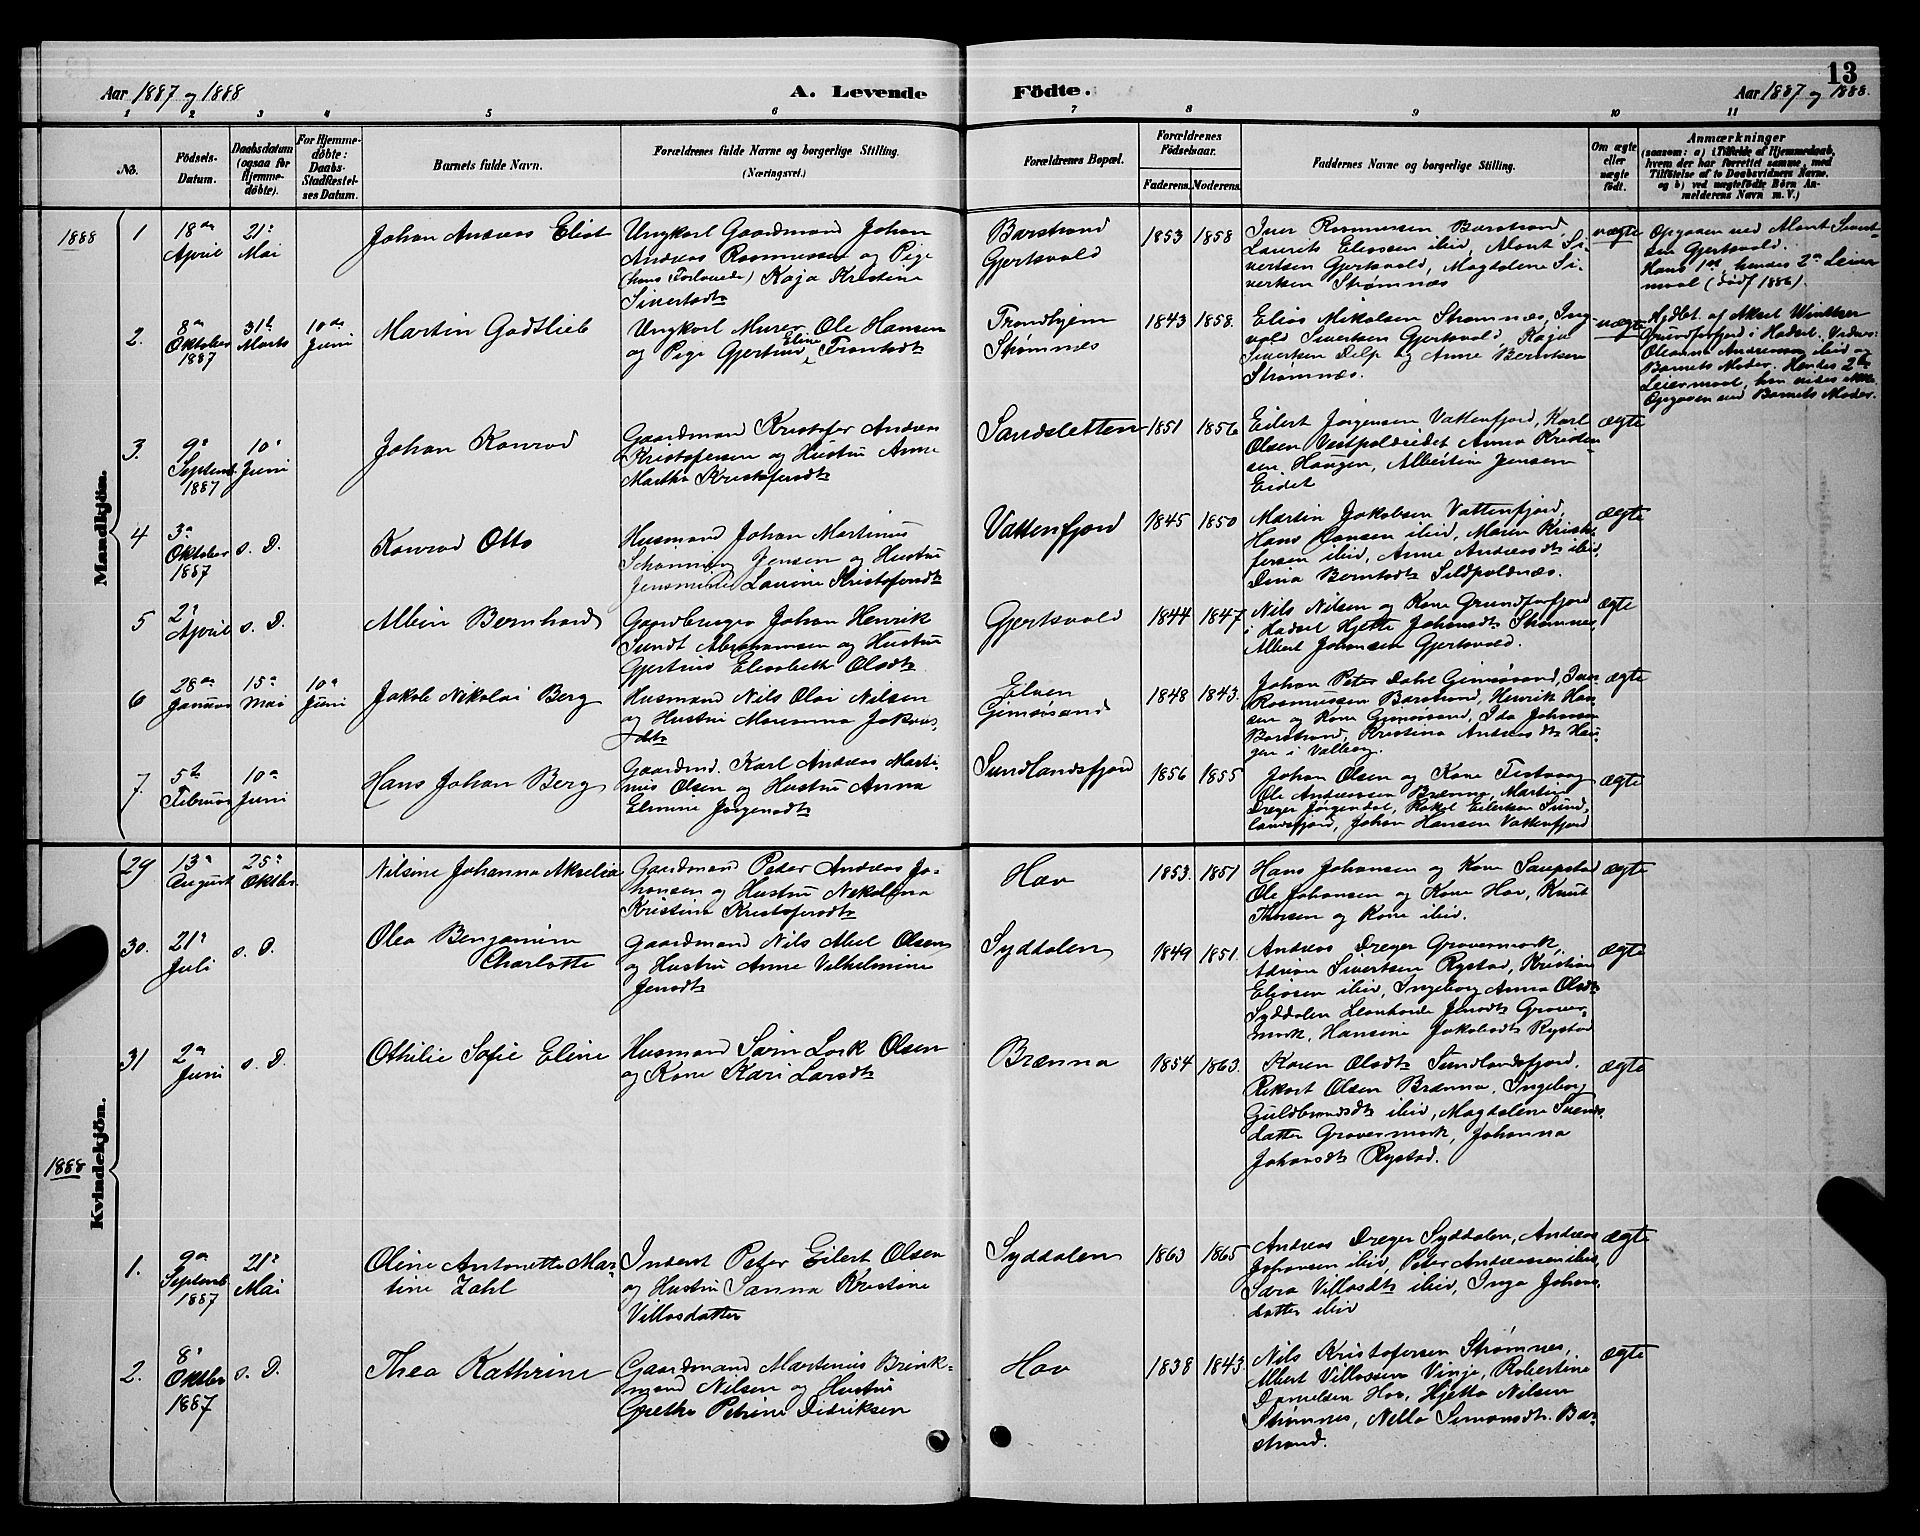 13
Aar 1887 og 1888
A. Levende Födte.
Aar 1887 og 1888.
1 2 3 4 5 6 7 8 9 10 11
No.
Födsels-Datum.
Daabsdatum (ogsaa for Hjemmedöbte).
For Hjemmedöbte: Daabs-Stadfæstelses Datum.
Barnets fulde Navn.
Forældrenes fulde Navne og borgerlige Stilling.
(Næringsvei.)
Forældrenes Bopæl.
Forældrenes Födselsaar.
Faderens. Moderens.
Faddernes Navne og borgerlige Stilling.
Om ægte eller uægte födt.
Anmærkninger
(saasom: a) i Tilfælde af Hjemmedaab,
hvem der har forrettet samme, med
Tilföielse af to Daabsvidners Navne,
og b) ved uægtefödte Börn Anmelderens Navn m. V.)
Mandkjön.
1888
1
18de April
21de Mai
Johan Andreas Eliot
Ungkarl Gaardmand Johan
Andreas Rasmussen og Pige
(hans Forlovede) Kaja Kristine
Sivertsdtr
Barstrand
Gjertsvold
1853 1858
Iver Rasmussen Barstrand
Laurits Eliassen ibid, Mont Si-
vertsen Gjertsvold, Magdalene Si-
vertsen Strømnæs
uægte
Opgaven ved Mont Sivert-
sen Gjertsvold.
Hans 1ste, hendes 2det Leier-
maal (død 1886).
2.
8de Oktober 1887
31te Marts
10de Juni
Martin Godtlieb
Ungkarl Murer Ole Hansen
og Pige Gjertrud Eline Tronsdtr
Trondhjem
Strømnæs
1843 1858.
Elias Mikalsen Strømnæs, Ing-
vald Sivertsen Gjertsvold, Kaja
Sivertsen Delp og Anne Berntsen
Strømnæs.
uægte
Hjdbt. af Akel Winther
Grundforfjord i Hadsel. Vidner:
Oleanna Andreassen ibid og
Barnets Moder. Hendes 2det
Leiermaal, han vides ikke
Opgaven ved Barnets Moder.
3.
9de Septemb. 1887
10de Juni
Johan Konrad
Gaardmand Kristofer Andreas
Kristofersen og Hustru Anne
Martha Kristofersdtr
Sandsletten
1851 1856
Eilert Jørgensen Vattenfjord, Karl
Olsen Vestpoldeidet Anna Kristen-
sen Haugen, Albertine Jensen
Eidet
ægte
4
3de Oktober 1887
s. D.
Konrad Otto
Husmand Johan Martinus
Schanning Jensen og Hustru
Jensmine Lausine Kristofersdtr
Vattenfjord
1845 1850
Martin Jakobsen Vattenfjord,
Hans Hansen ibid, Maren Kristo-
fersen ibid, Anne Andreasdtr ibid,
Dina Berntsdtr Sildpoldnæs.
ægte
5
2de April
s. D.
Albin Bernhard
Gaardbruger Johan Henrik
Sundt Abrahamsen og Hustru
Gjertine Elisabeth Olsdtr
Gjertsvold
1844 1847
Nils Nilsen og Kone Grundforfjord
i Hadsel Hjetta Johansdtr Strømnæs,
Albert Johansen Gjertsvold.
ægte
6
28de Januar
15de Mai
10de Juni
Jakob Nikolai Berg
Husmand Nils Olai Nilsen
og Hustru Maremma Jakobs-
dtr
Elven
Gimsøsand
1848 1843.
Johan Peter Dahl Gimsøsand, Iver
Rasmussen Barstrand, Henrik Han-
sen og Kone Gimsøsand, Ida Johansen
Barstrand, Kristina Andreasdtr Hau-
gen i Valberg.
ægte
7.
5te Februar
10de Juni
Hans Johan Berg
Gaardmd. Karl Andreas Marti-
nus Olsen og Hustru Anna
Elmine Jørgensdtr
Sundlandsfjord
1856 1855
Johan Olsen og Kone Festvaag
Ole Andreassen Brænna, Martine
Dreyer Jørgendal, Rakel Eilertsen Sund-
landsfjord, Johan Hansen Vattenfjord
ægte
Kvindekjön.
29
13de August
25de Oktbr.
Nilsine Johanna Akselia
Gaardmand Peter Andreas Jo-
hansen og Hustru Nikolina
Kristina Kristofersdtr
Hov
1853. 1851
Hans Johansen og Kone Saupstad
Ole Johansen og Kone Hov, Knut
Thorsen og Kone ibid.
ægte
30.
21de Juli
s. D.
Olea Benjamine
Charlotte
Gaardmand Nils Abel Olsen
og Hustru Anne Vilhelmine
Jensdtr
Syddalen
1849 1851.
Andreas Dreyer Gravermark,
Adrian Sivertsen Rystad, Kristian
Eliasen ibid, Ingeborg Anna Olsdtr
Syddalen Leonharda Jensdtr Graver-
mark, Hansine Jakobsdtr Rystad
ægte
31
2de Juni
s. D.
Othilie Sofie Eline
Husmand Sørin Lork Olsen
og Kone Kari Larsdtr
Brænna
1854 1863.
Karen Olsdtr Sundlandsfjord,
Rikart Olsen Brænna, Ingeborg
Guldbrandsdtr ibid, Magdalene Svends-
datter Gravermark, Johanna
Johansdtr Rystad.
ægte
1888
1.
9de Septemb. 1887
21de Mai
Oline Antonette Mar-
tine Zahl
Inderst Peter Eilert Olsen
og Hustru Sanna Kristine
Villasdatter
Syddalen
1863 1865
Andreas Dreyer Syddalen, Andreas
Johansen ibid, Peter Andreassen ibid,
Sara Villasdtr ibid, Inga Johans-
datter ibid
ægte
2.
8de Oktbr 1887
s. D.
Thea Kathrine
Gaardmand Martinius Brink-
mand Nilsen og Hustru
Grethe Petrine Didriksen
Hov
1838 1843.
Nils Kristofersen Strømnes,
Albert Villassen Vinje, Robertine
Danielsen Hov, Hjetta Nilsen
Strømnes, Nella Simonsdtr. Bar-
strand.
ægte